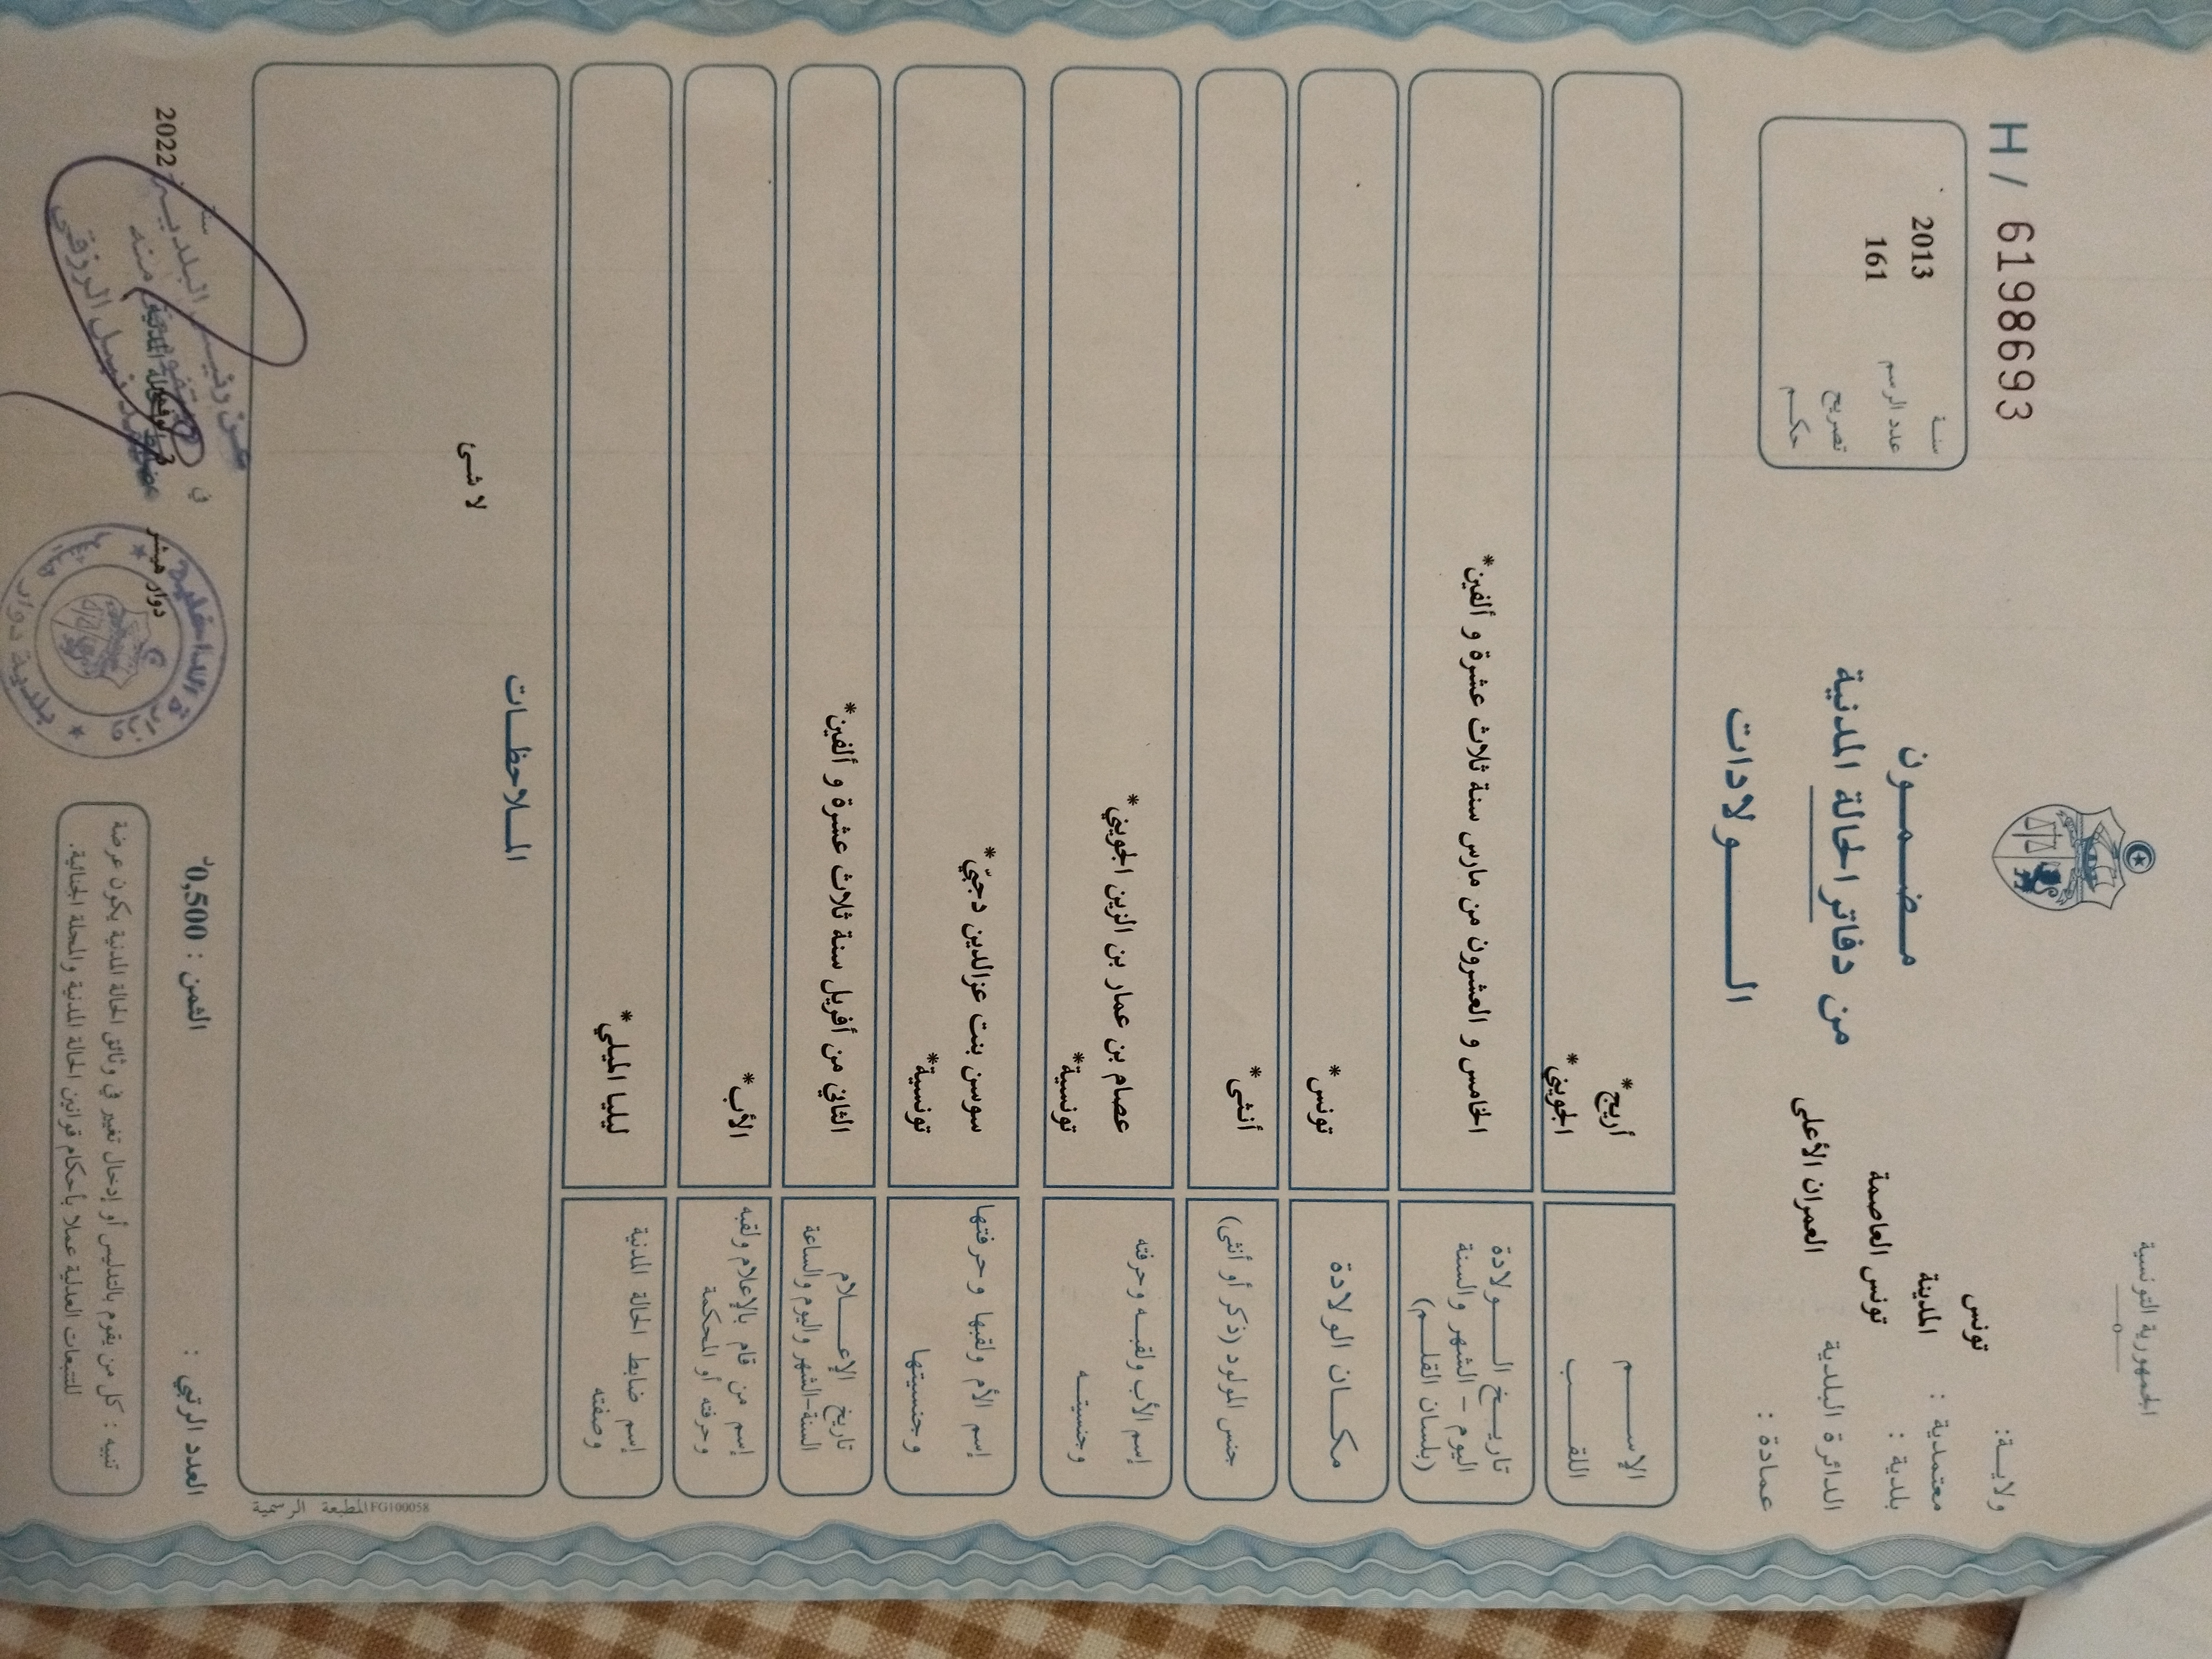 الجمهورية التونسية
H/ 6198693
ولايـة: تونس
معتمدية : المدينة
بلدية : تونس العاصمة
الدائرة البلدية العمران الأعلى
عمادة :
سنـة 2013
عدد الرسم 161
تصريح
حكـم
مـضـمـون
من دفاتر الحالة المدنية
الــولادات
الإســـم أريج*
اللقـــب الجويني*
تاريـخ الــولادة
اليوم - الشهر والسنة
(بلسان القلـم)
الخامس و العشرون من مارس سنة ثلاث عشرة و ألفين*
مكـان الولادة تونس*
جنس المولود (ذكر أو أنثى) أنثى*
إسم الأب ولقبـه وحرفته
وجنسيتـه
عصام بن عمار بن الزين الجويني*
تونسية*
إسم الأم ولقبها وحرفتها
وجنسيتها
سوسن بنت عزالدين دجبّي*
تونسية*
تاريخ الإعـــلام
السنة-الشهر واليوم والساعة
الثاني من أفريل سنة ثلاث عشرة و ألفين*
إسم من قام بالإعلام ولقبه
وحرفته أو المحكمة
الأب*
إسم ضابط الحالة المدنية
وصفته
ليليا الميلي*
المـلاحظـات
لا شئ
المطبعة الرسمية IFG100058
العدد الرتبي :
الثمن : 0,500د
دوار هيشر في سنة 2022
تنبيه : كل من يقوم بالتدليس أو إدخال تغيير في وثائق الحالة المدنية يكون عرضة
للتتبعات العدلية عملا بأحكام قوانين الحالة المدنية والمجلة الجنائية.